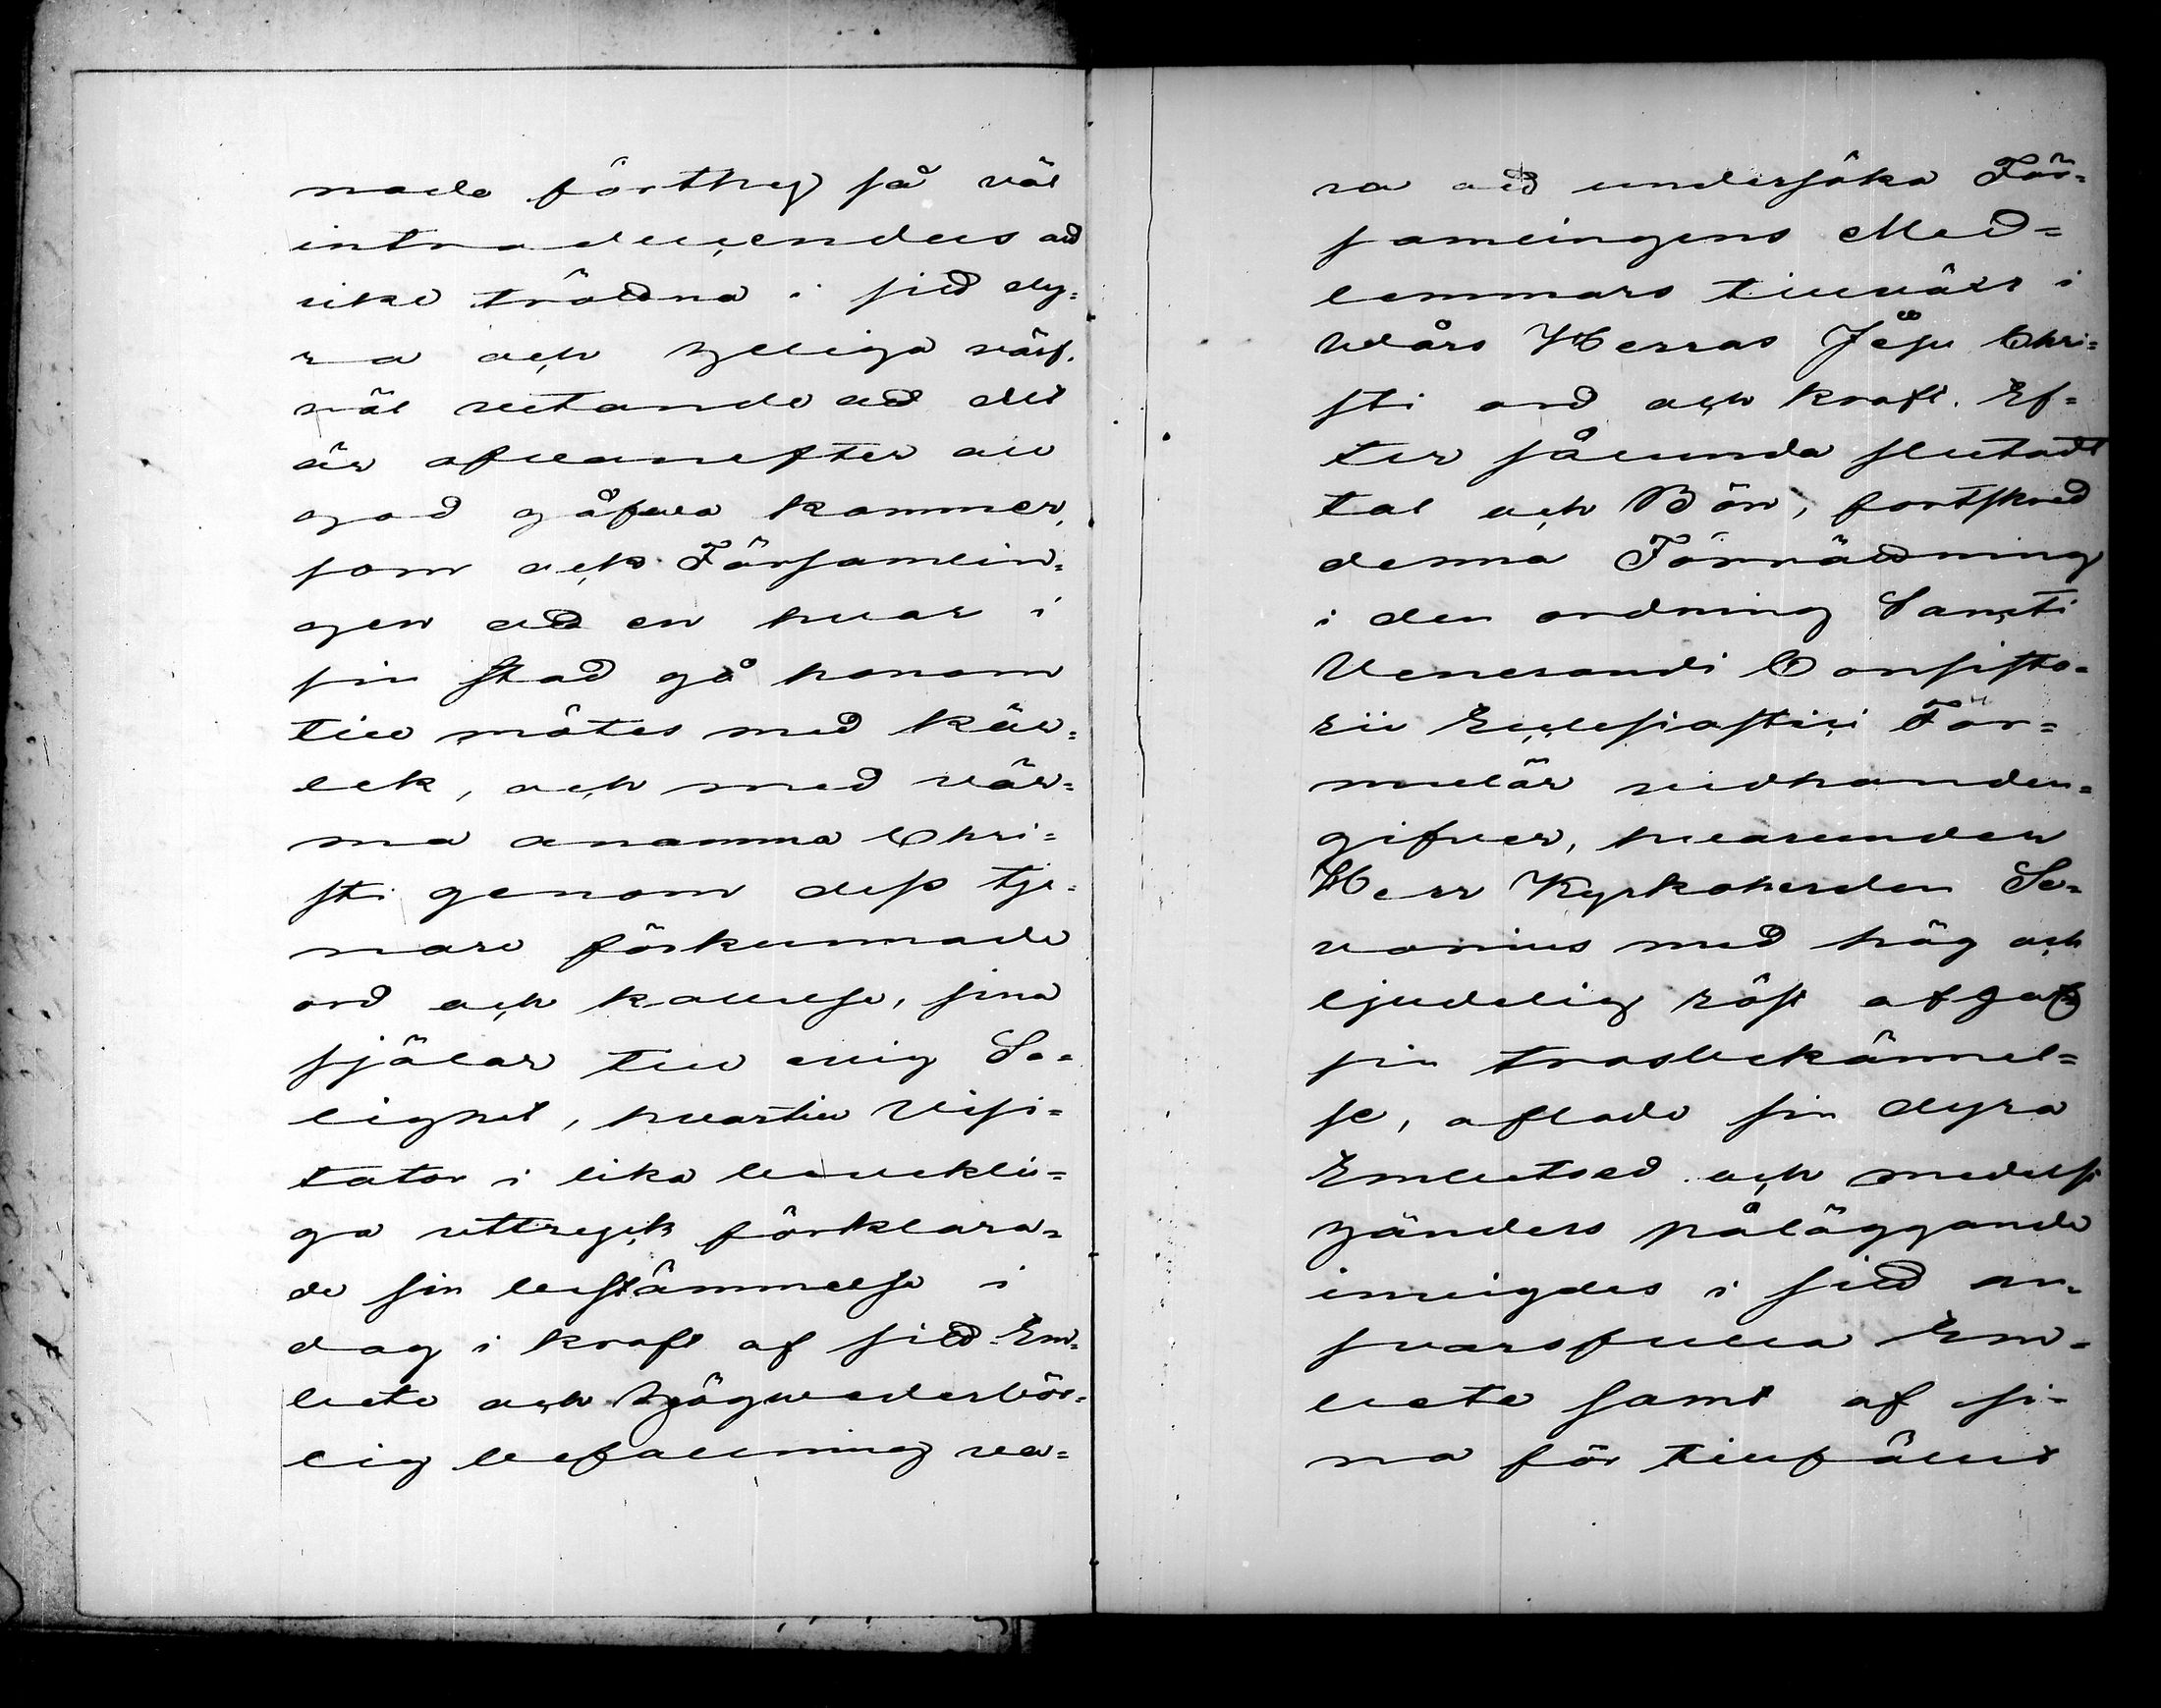 nade förthy så väl
introducendus ad
icke trötna i sitt dy=
ra och heliga värf.
väl vetande att det
är ofvanefter all
god gåfva kommer,
som ock Församlin=
gen att en hvar i
sin stad gå honom
till mötes med kär=
lek, och med vär=
ma anamma Chri=
sti genom dess tje=
nare förkunnade
ord och kallelse, sina
själar till evig Sa=
lighet, hvartill Visi=
tator i lika bevekli=
ga uttryck förklara=
de sin bestämmelse i
dag i kraft af sitt Em=
bete och högvederbör=
lig befallning va=
ra att undersöka För=
samlingens Med=
lemmars tillväxt i
Wårs Herras Jesu Chri=
sti ord och kraft. Ef=
ter sålunda slutadt
tal och Bön, fortskred
denna Förrättning
i den ordning Sancti
Venerandi Consisto=
rii Ecclesiastici For=
mulär vidhanden=
gifver, hvarunder
Herr Kyrkoherden Sa=
vonius med hög och
ljudelig röst afgaf
sin trosbekännel=
se, aflade sin dyra
Embetsed och medelst
händers påläggande
invigdes i sitt an=
svarsfulla Em=
bete samt af si=
na för tillfället